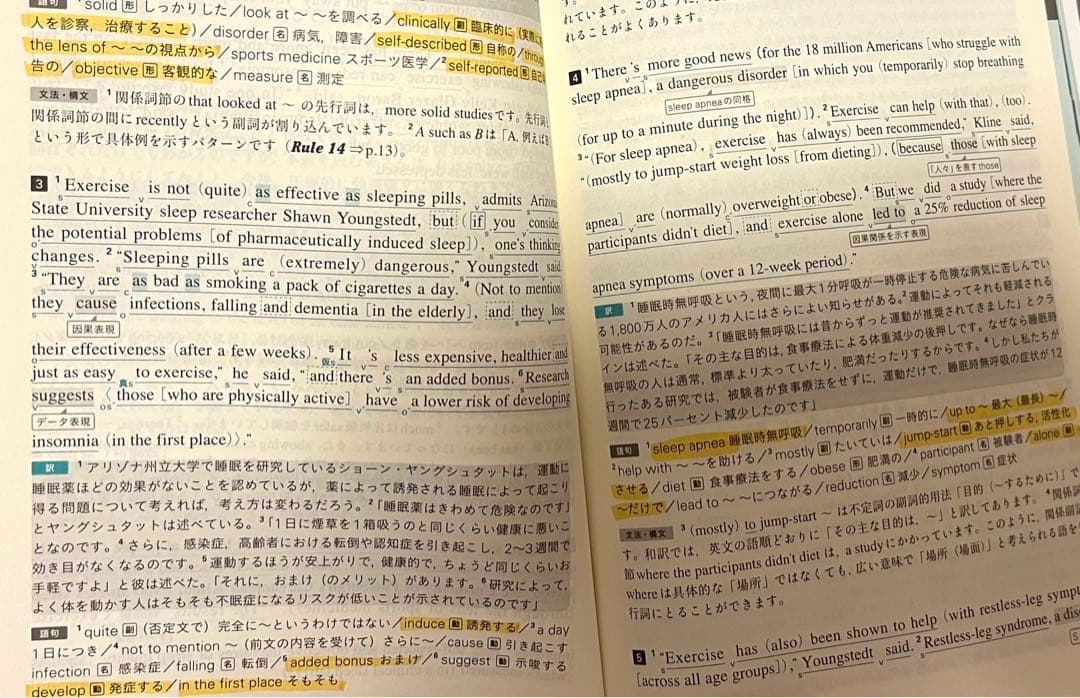 語句 ¹solid 形 しっかりした／look at ～ ～を調べる／clinically 副 臨床的に（実際に
人を診察，治療すること）／disorder 名 病気，障害／self-described 形 自称の／through
the lens of ～ ～の視点から／sports medicine スポーツ医学／²self-reported 形 自己
告の／objective 形 客観的な／measure 名 測定
文法・構文 ¹関係詞節のthat looked at ～ の先行詞は，more solid studiesです。先行詞
関係詞節の間にrecentlyという副詞が割り込んでいます。 ²A such as Bは「A，例えばB
という形で具体例を示すパターンです（Rule 14⇒p.13）。
3 ¹Exercise is not (quite) as effective as sleeping pills, admits Arizona
State University sleep researcher Shawn Youngstedt, but (if you conside
the potential problems [of pharmaceutically induced sleep]), one's thinking
changes. ²"Sleeping pills are (extremely) dangerous," Youngstedt said.
³"They are as bad as smoking a pack of cigarettes a day. ⁴(Not to mention
they cause infections, falling and dementia [in the elderly], and they lose
因果表現
their effectiveness (after a few weeks). ⁵It 's less expensive, healthier and
just as easy to exercise," he said, "and there 's an added bonus. ⁶Research
suggests 〈those [who are physically active] have a lower risk of developing
データ表現
insomnia (in the first place)〉."
訳 ¹アリゾナ州立大学で睡眠を研究しているショーン・ヤングシュタットは，運動に
睡眠薬ほどの効果がないことを認めているが，薬によって誘発される睡眠によって起こり
得る問題について考えれば，考え方は変わるだろう。²「睡眠薬はきわめて危険なのです」
とヤングシュタットは述べている。³「1日に煙草を1箱吸うのと同じくらい健康に悪いこ
となのです。⁴さらに，感染症，高齢者における転倒や認知症を引き起こし，2～3週間で
効き目がなくなるのです。⁵運動するほうが安上がりで，健康的で，ちょうど同じくらいお
手軽ですよ」と彼は述べた。「それに，おまけ（のメリット）があります。⁶研究によって，
よく体を動かす人はそもそも不眠症になるリスクが低いことが示されているのです」
語句 ¹quite 副（否定文で）完全に～というわけではない／induce 動 誘発する／³a day
1日につき／⁴not to mention ～（前文の内容を受けて）さらに～／cause 動 引き起こす
infection 名 感染症／falling 名 転倒／⁵added bonus おまけ／⁶suggest 動 示唆する
develop 動 発症する／in the first place そもそも
れています。
れることがよくあります。
4 ¹There 's more good news (for the 18 million Americans [who struggle with
sleep apnea], a dangerous disorder [in which you (temporarily) stop breathing
sleep apneaの同格
(for up to a minute during the night)]). ²Exercise can help (with that), (too).
³"(For sleep apnea), exercise has (always) been recommended," Kline said,
"(mostly to jump-start weight loss [from dieting]), (because those [with sleep
「人々」を表すthose
apnea] are (normally) overweight or obese). ⁴But we did a study [where the
participants didn't diet], and exercise alone led to a 25% reduction of sleep
因果関係を示す表現
apnea symptoms (over a 12-week period)."
訳 ¹睡眠時無呼吸という，夜間に最大1分呼吸が一時停止する危険な病気に苦しんでい
る1,800万人のアメリカ人にはさらによい知らせがある。²運動によってそれも軽減される
可能性があるのだ。³「睡眠時無呼吸には昔からずっと運動が推奨されてきました」とクラ
インは述べた。「その主な目的は，食事療法による体重減少の後押しです。なぜなら睡眠時
無呼吸の人は通常，標準より太っていたり，肥満だったりするからです。⁴しかし私たちが
行ったある研究では，被験者が食事療法をせずに，運動だけで，睡眠時無呼吸の症状が12
週間で25パーセント減少したのです」
語句 ¹sleep apnea 睡眠時無呼吸／temporarily 副 一時的に／up to ～ 最大（最長）～／
²help with ～ ～を助ける／³mostly 副 たいていは／jump-start 動 あと押しする，活性化
させる／diet 動 食事療法をする／obese 形 肥満の／⁴participant 名 被験者／alone 副
～だけで／lead to ～ ～につながる／reduction 名 減少／symptom 名 症状
文法・構文 ³(mostly) to jump-start ～ は不定詞の副詞的用法「目的（～するために）」で
す。和訳では，英文の語順どおりに「その主な目的は，～」と訳してあります。⁴関係詞
節where the participants didn't diet は，a studyにかかっています。このように，関係副詞
whereは具体的な「場所」ではなくても，広い意味で「場所（場面）」と考えられる語を
行詞にとることができます。
5 ¹"Exercise has (also) been shown to help (with restless-leg sympt
[across all age groups])," Youngstedt said. ²Restless-leg syndrome, a dis